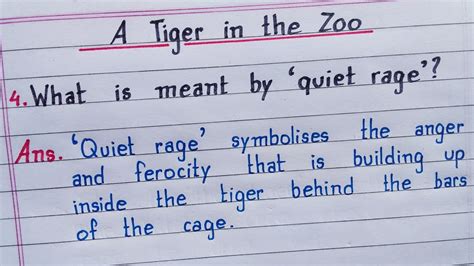 A Tiger in the Zoo
4. What is meant by ‘quiet rage’?
Ans. ‘Quiet rage’ symbolises the anger
and ferocity that is building up
inside the tiger behind the bars
of the cage.